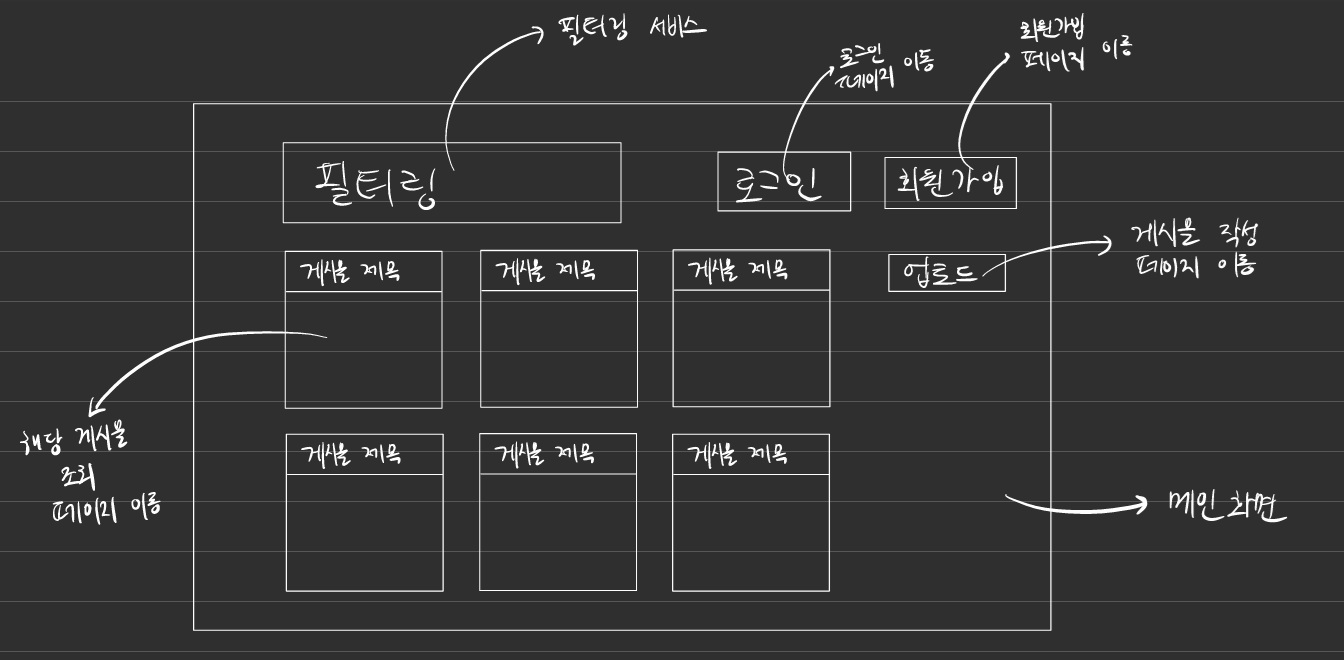 필터링 서비스
로그인
페이지 이동
회원가입
페이지 이동
필터링
로그인
회원가입
게시물 제목
게시물 제목
게시물 제목
업로드
게시물 작성
페이지 이동
해당 게시물
조회
페이지 이동
게시물 제목
게시물 제목
게시물 제목
메인 화면